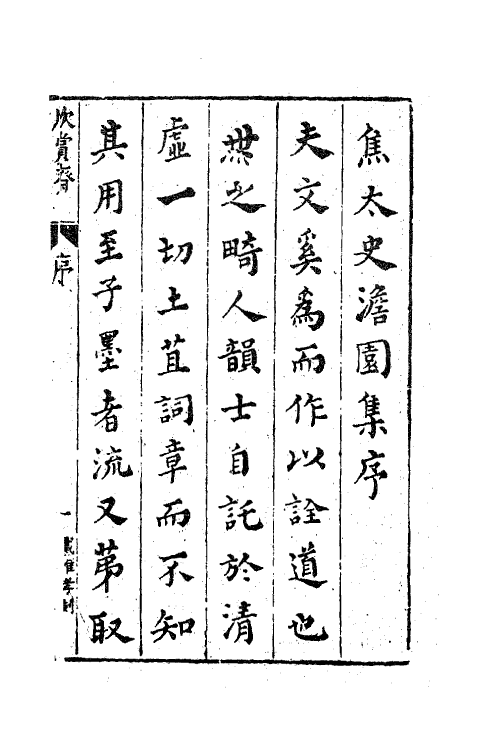 焦太史澹園集序
夫文奚為而作以詮道也
無之畸人韻士自託於清
虛一切土苴詞章而不知
其用至子墨者流又苐取
欣賞齋
序
一